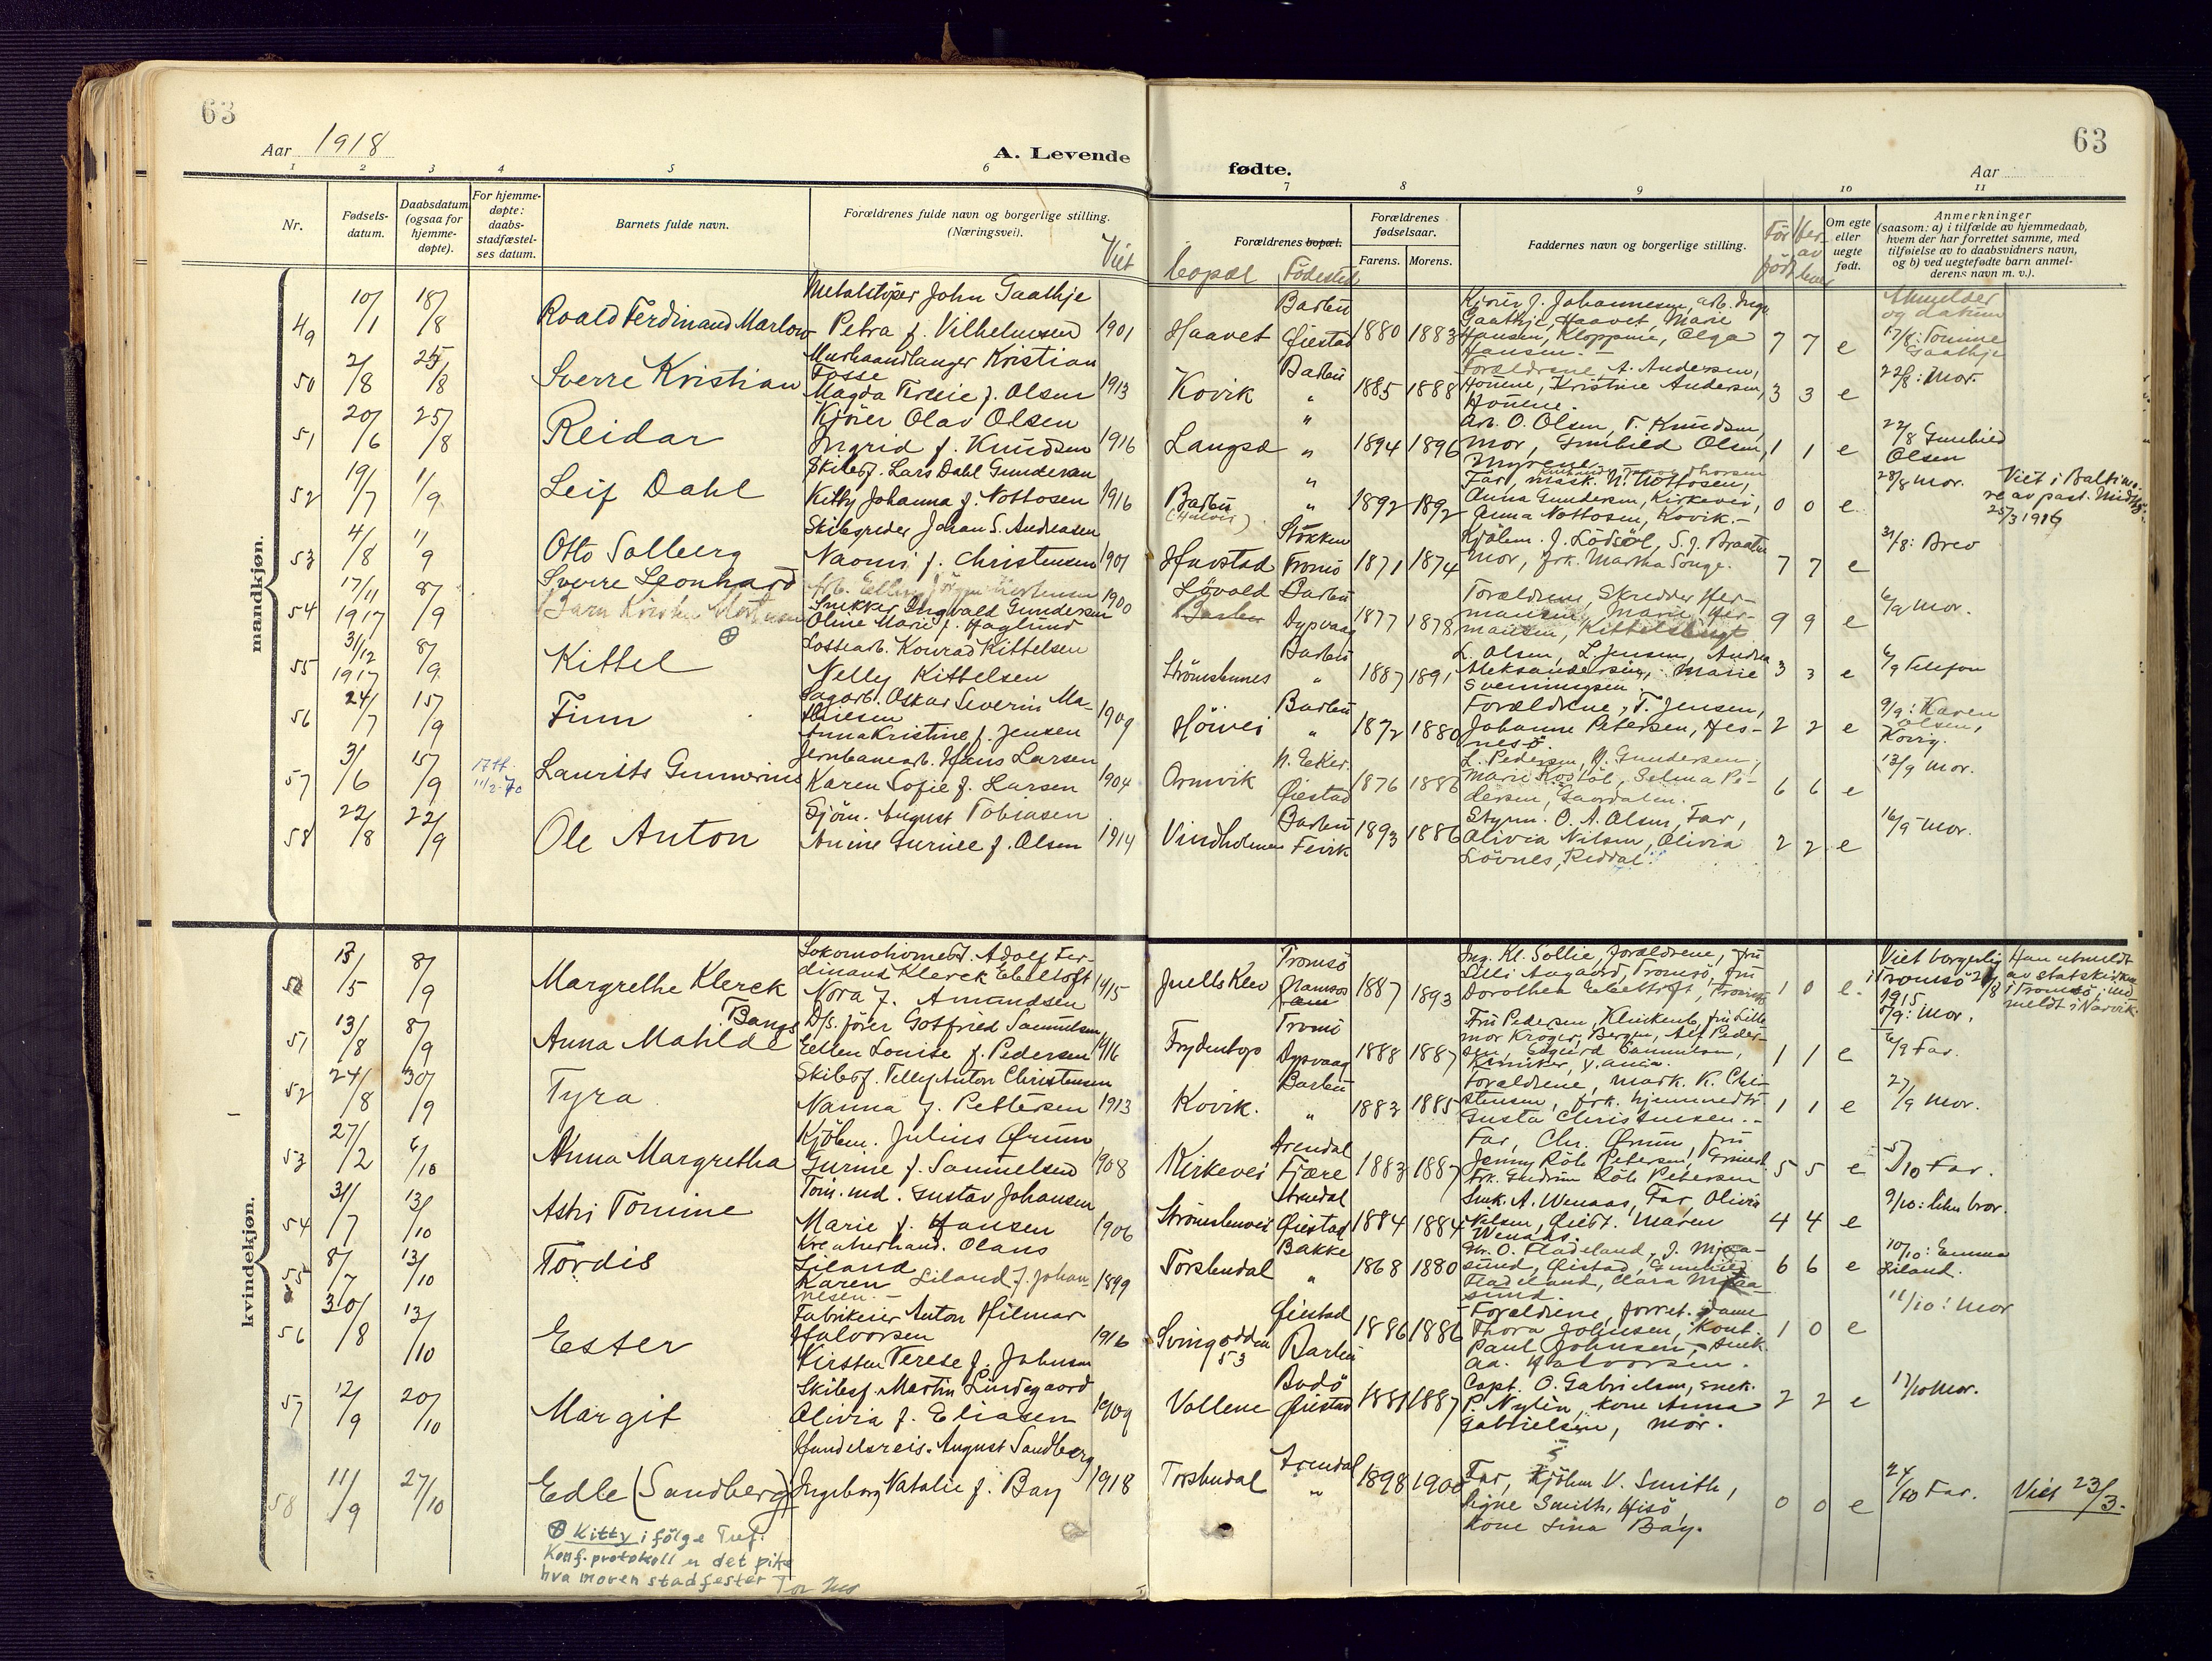 63
63
Aar 1918
A. Levende
fødte.
Aar
1 2 3 4 5 6 7 8 9 10 11
Nr.
Fødsels-
datum.
Daabsdatum
(ogsaa for
hjemme-
døpte).
For hjemme-
døpte:
daabs-
stadfæstel-
ses datum.
Barnets fulde navn.
Forældrenes fulde navn og borgerlige stilling.
(Næringsvei).
Viet
Forældrenes bopæl.
bopæl Fødested
Forældrenes
fødselsaar.
Farens. Morens.
Faddernes navn og borgerlige stilling.
Om egte
eller
uegte
født.
Anmerkninger
(saasom: a) i tilfælde av hjemmedaab,
hvem der har forrettet samme, med
tilføielse av to daabsvidners navn,
og b) ved uegtefødte barn anmel-
derens navn m. v.).
mandkjøn.
Anmelder
og datum
49 10/1 18/8 Roald Ferdinand Marlow
Metalstøper John Gaathje
Petra f. Vilhelmsen 1901
Haavet Barbu Øiestad 1880 1883
Gaathje, Haavet, Marie
Hansen, Kloppene, Olga
Hansen. 7 7 e
17/8: Tomine
Gaathje
50 2/8 25/8 Sverre Kristian
Murhaandlanger Kristian
Fosse
Magda Terese f. Olsen 1913
Kovik Barbu " 1885 1888
Forældrene, A. Andersen,
Kristine Andersen,
3 3 e
22/8: Mor.
51 20/6 25/8 Reidar
Kjører Olav Olsen
Ingrid f. Knudsen 1916
Langsæ " " 1894 1896
Arb. O. Olsen, T. Knudsen,
Mor, Gunhild Olsen,
Myrene 1 1 e
22/8 Gunhild
Olsen
52 19/7 1/9 Leif Dahl
Skibsf. Lars Dahl Gundersen
Kitty Johanna f. Nottosen 1916
Barbu " " 1892 1892
Far, mask. N. Nottosen,
Anna Gundersen, Kirkevei,
Anna Nottosen, Kovik.- 0 0 e
28/8 Mor.
Viet i Baltimo-
re av past.
25/3 1916
53 4/8 1/9 Otto Solberg
Skibsreder Johan S. Andreasen
Naomi f. Christensen 1901
Havstad Stokken Tromø 1871 1874
Kjøbm. J. Lødsøl, S. J. Braaten
Mor, frk. Martha Songe. 7 7 e
31/8: Brev
54 17/11 1917 8/9 Sverre Leonhard
Snekker Ingvald Gundersen
Oline Marie f. Haglund 1900
Løvold Barbu Dypvaag 1877 1878
Forældrene, Skredder Her-
mansen, Marie Her-
mansen, Kittelsbugt 9 9 e
6/9 Mor.
55 31/12 1917 8/9 Kittel ⊕
Lossearb. Konrad Kittelsen
Nelly Kittelsen
Strømsbunes Barbu " 1887 1891
L. Olsen, L. Jensen, Andrea
Aleksandersen, Marie
Svenningsen. 3 3 e
6/9 Telefon
56 24/7 15/9 Finn
Sagarb. Oskar Severin Ma-
thiesen
Anna Kristine f. Jensen 1909
Høivei Barbu " 1872 1880
Forældrene, T. Jensen,
Johanne Petersen, Hes-
nesø. 2 2 e
9/9: Karen
Olsen,
Kovig.
57 3/6 15/9 Laurits Gunnerius
Jernbanearb. Hans Larsen
Karen Sofie f. Larsen 1904
Ormvik N. Eker. Øiestad 1876 1886
L. Pedersen, N. Gundersen,
Marie Rostøl, Selma Pe-
dersen, 6 6 e
13/9 Mor.
58 22/8 22/9 Ole Anton
Sjøm. August Tobiasen
Anine Gurine f. Olsen 1914
Vindholmen Barbu Fevik 1893 1886
Styrm. O. A. Olsen, Far,
Olivia Nilsen, Olivia
Løvnes, Reddal. 2 2 e
16/9 Mor.
kvindekjøn.
50 13/5 8/9 Margrethe Klerck
Lokomotivmest. Adolf Fer-
dinand Klerck Ebeltoft
Nora f. Amundsen 1915
Juells Klev Tromsø Namsos 1887 1893
Ing. Kl. Sollie, Forældrene, Fru
Lilli Aagaard, Tromsø, Fru
Dorothea Ebeltoft, Tromsø 1 0 e.
Viet borgerlig
i Tromsø
1915
5/9: Mor.
Han utmeldt
av statskirken
i Tromsø, ind-
meldt i Narvik.
51 13/8 8/9 Anna Mathilde Bangs
D/s. fører Gotfried Samuelsen,
Ellen Louise f. Pedersen 1916
Frydentopp Tromø Dypvaag 1888 1887
mor Krøger, Bergen, Alf Peder-
sen, Sigurd Samuelsen,
1 1 e
6/9 Far.
52 24/8 30/9 Tyra
Skibsf. Telly Anton Christensen
Nanna f. Pettersen 1913
Kovik. Barbu " 1883 1885
Forældrene, mask. K. Chri-
stensen, frk.
Gusta Christensen.- 1 1 e
27/9 Mor.
53 27/2 6/10 Anna Margretha
Kjøbm. Julius Ørum
Gurine f. Samuelsen 1908
Kirkevei Arendal Fjære 1883 1887
Far, Chr. Ørum, fru
Jenny Røb Petersen, Grimst.
Frk. Gudrun Røb Petersen 5 5 e
5/10 Far.
54 31/7 13/10 Astri Tomine
Tom. md. Gustav Johansen
Marie f. Hansen 1906
Strømsbuvei Arendal Øiestad 1884 1884
Smk. A. Wenaas, Far, Olivia
Nilsen, Øiest. Maren
Wenaas. 4 4 e
9/10:
55 8/7 13/10 Tordis
Kreaturhand. Olaus
Liland
Karen Liland f. Johan-
nesen.- 1899
Torsbudal Bakke " 1868 1880
Hr. O. Fladeland, J. Mjaa-
sund, Øistad, Gunhild
Fladeland, Clara Mjaa-
sund. 6 6 e
10/10: Emma
Liland.
56 30/8 13/10 Ester
Fabrikeier Anton Hilmar
Halvorsen
Kirsten Terese f. Johnsen 1916
Svingodden
53 Øiestad Barbu 1886 1886
Forældrene, forret. dame
Thora Johnsen, Kont.
Paul Johnsen, smk.
Aa. Halvorsen. 1 0 e
11/10: Mor
57 12/9 20/10 Margit
Skibsf. Martin Lindegaard
Olivia f. Eliasen 1909
Vollene Bodø Øiestad 1881 1887
Capt. O. Gabrielsen, snek.
P. Nylin, kone Anna
Gabrielsen, mor. 2 2 e
17/10 Mor.
58 11/9 27/10 Edle (Sandberg)
Handelsreis. August Sandberg
Ingeborg Natalie f. Bay 1918
Torsbudal Arendal " 1898 1900
Far, Kjøbm V. Smith,
Signe Smith, Hisø
Kone Lina Bay. 0 0 e
24/10 Far.
Viet 23/3.
⊕ Kitty i følge
Konf. protokoll er det pike
hva moren stadfester